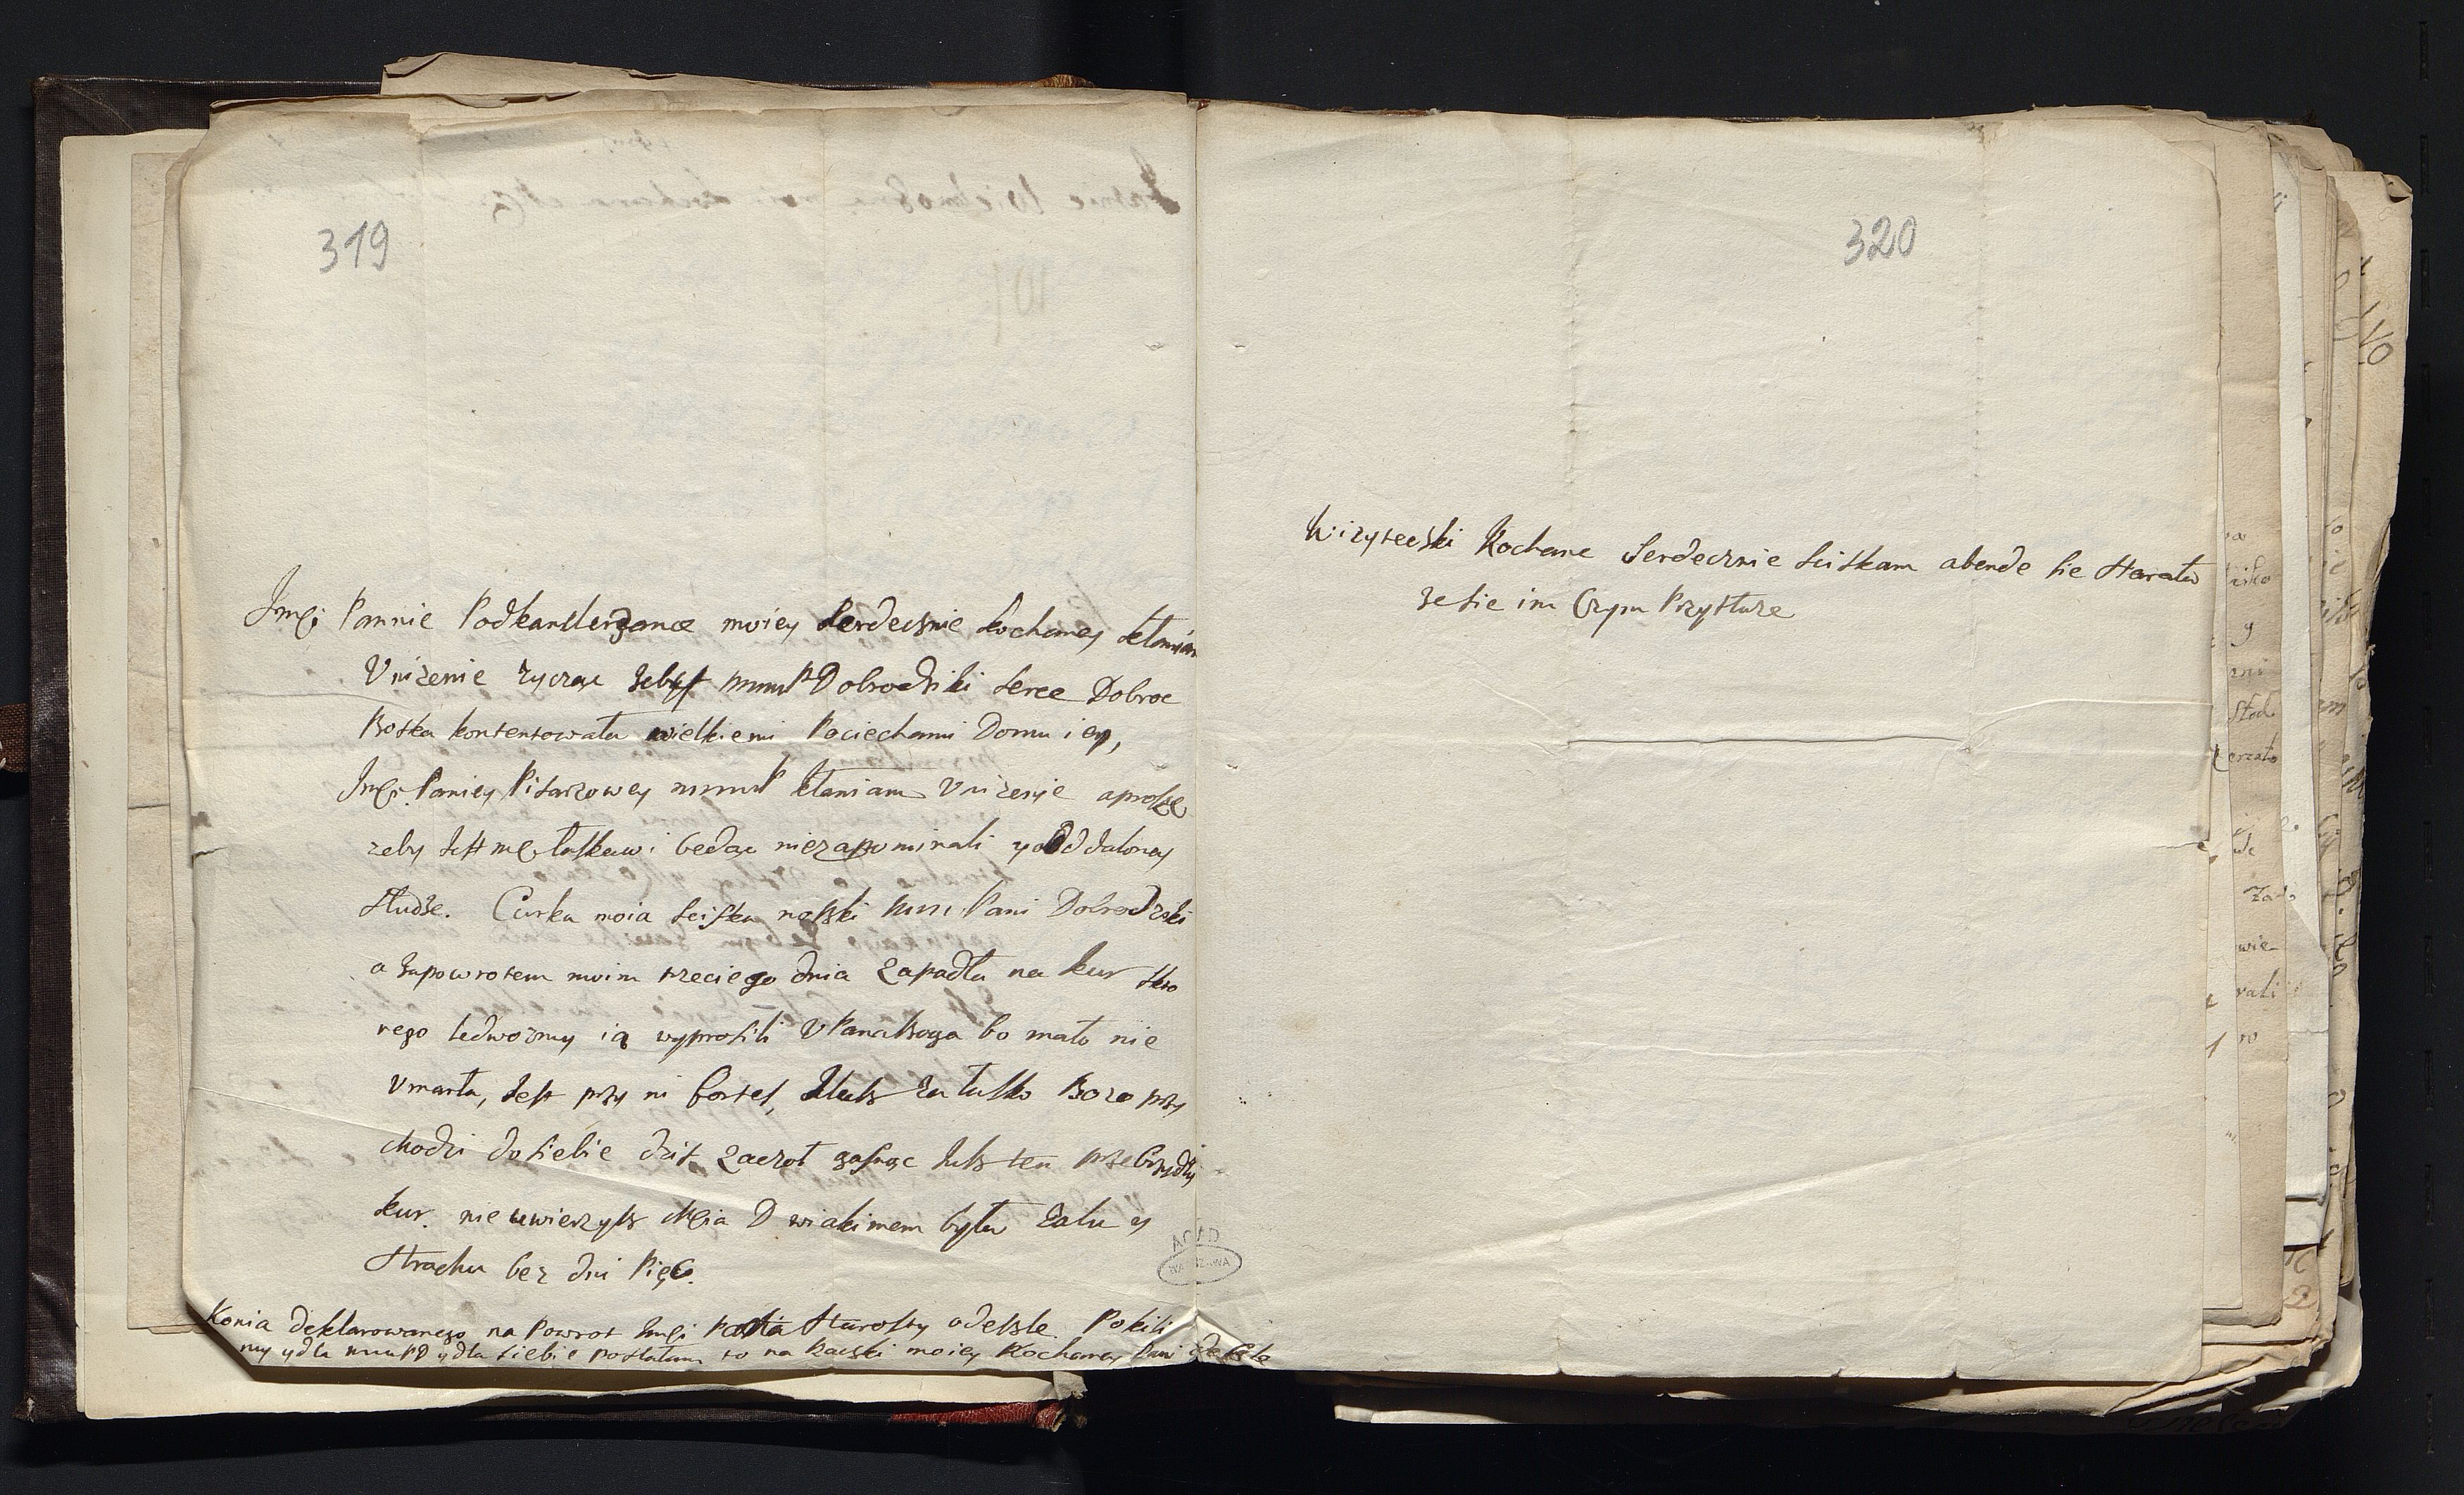 319
Jmci Pannie Podkanclerzance moiey serdecznie kochaney kłaniam
Unizenie zycząc zebyś mmmP Dobrodziki serce Dobroc
Boska kontentowała wielkiemi Pociechami Domu iey,
Jmci Paniey Pisarzowey mmmP kłaniam Unizenie aproszę
zeby łaskawi bedąc niezapominali y Oddaloney
słudze. Curka moia sciska noszki mm Pani Dobrodzki
a zapowrotem moim trzeciego dnia zapadła na kur kto
rego ledwozmy ią wyprosili U Pana Boga bo mało nie
Umarła, iest przy ni Cortet, za łasko Bozo przy
chodzi do siebie dzis zaczoł gasnąc ten przebrzydły
kur. nie uwierzysz Mcia D wiakimem była zalu y
strachu bez dni Pięć.
Konia deklarowanego na Powrot Jmci Pana Starosty odeszle. Pokili
my y dla mmPD y dla siebie posłałam to na Raczki moiey Kochaney Pani
320
Wizyteczki Kochane Serdecznie sciskam abende sie starała
ze sie im Czym Przysłuze
AGAD
WARSZAWA